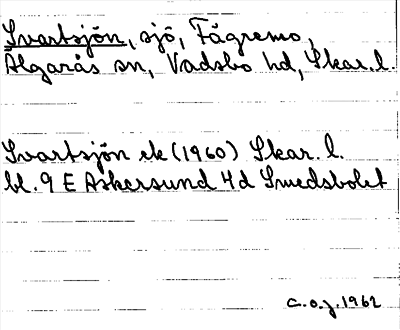 Svartsjön, sjö, Fågremo,
Älgarås sn, Vadsbo hd, Skar. l.
Svartsjön ek (1960) Skar. l.
bl. 9 E Askersund 4d Smedsbolet
C.O.J. 1962